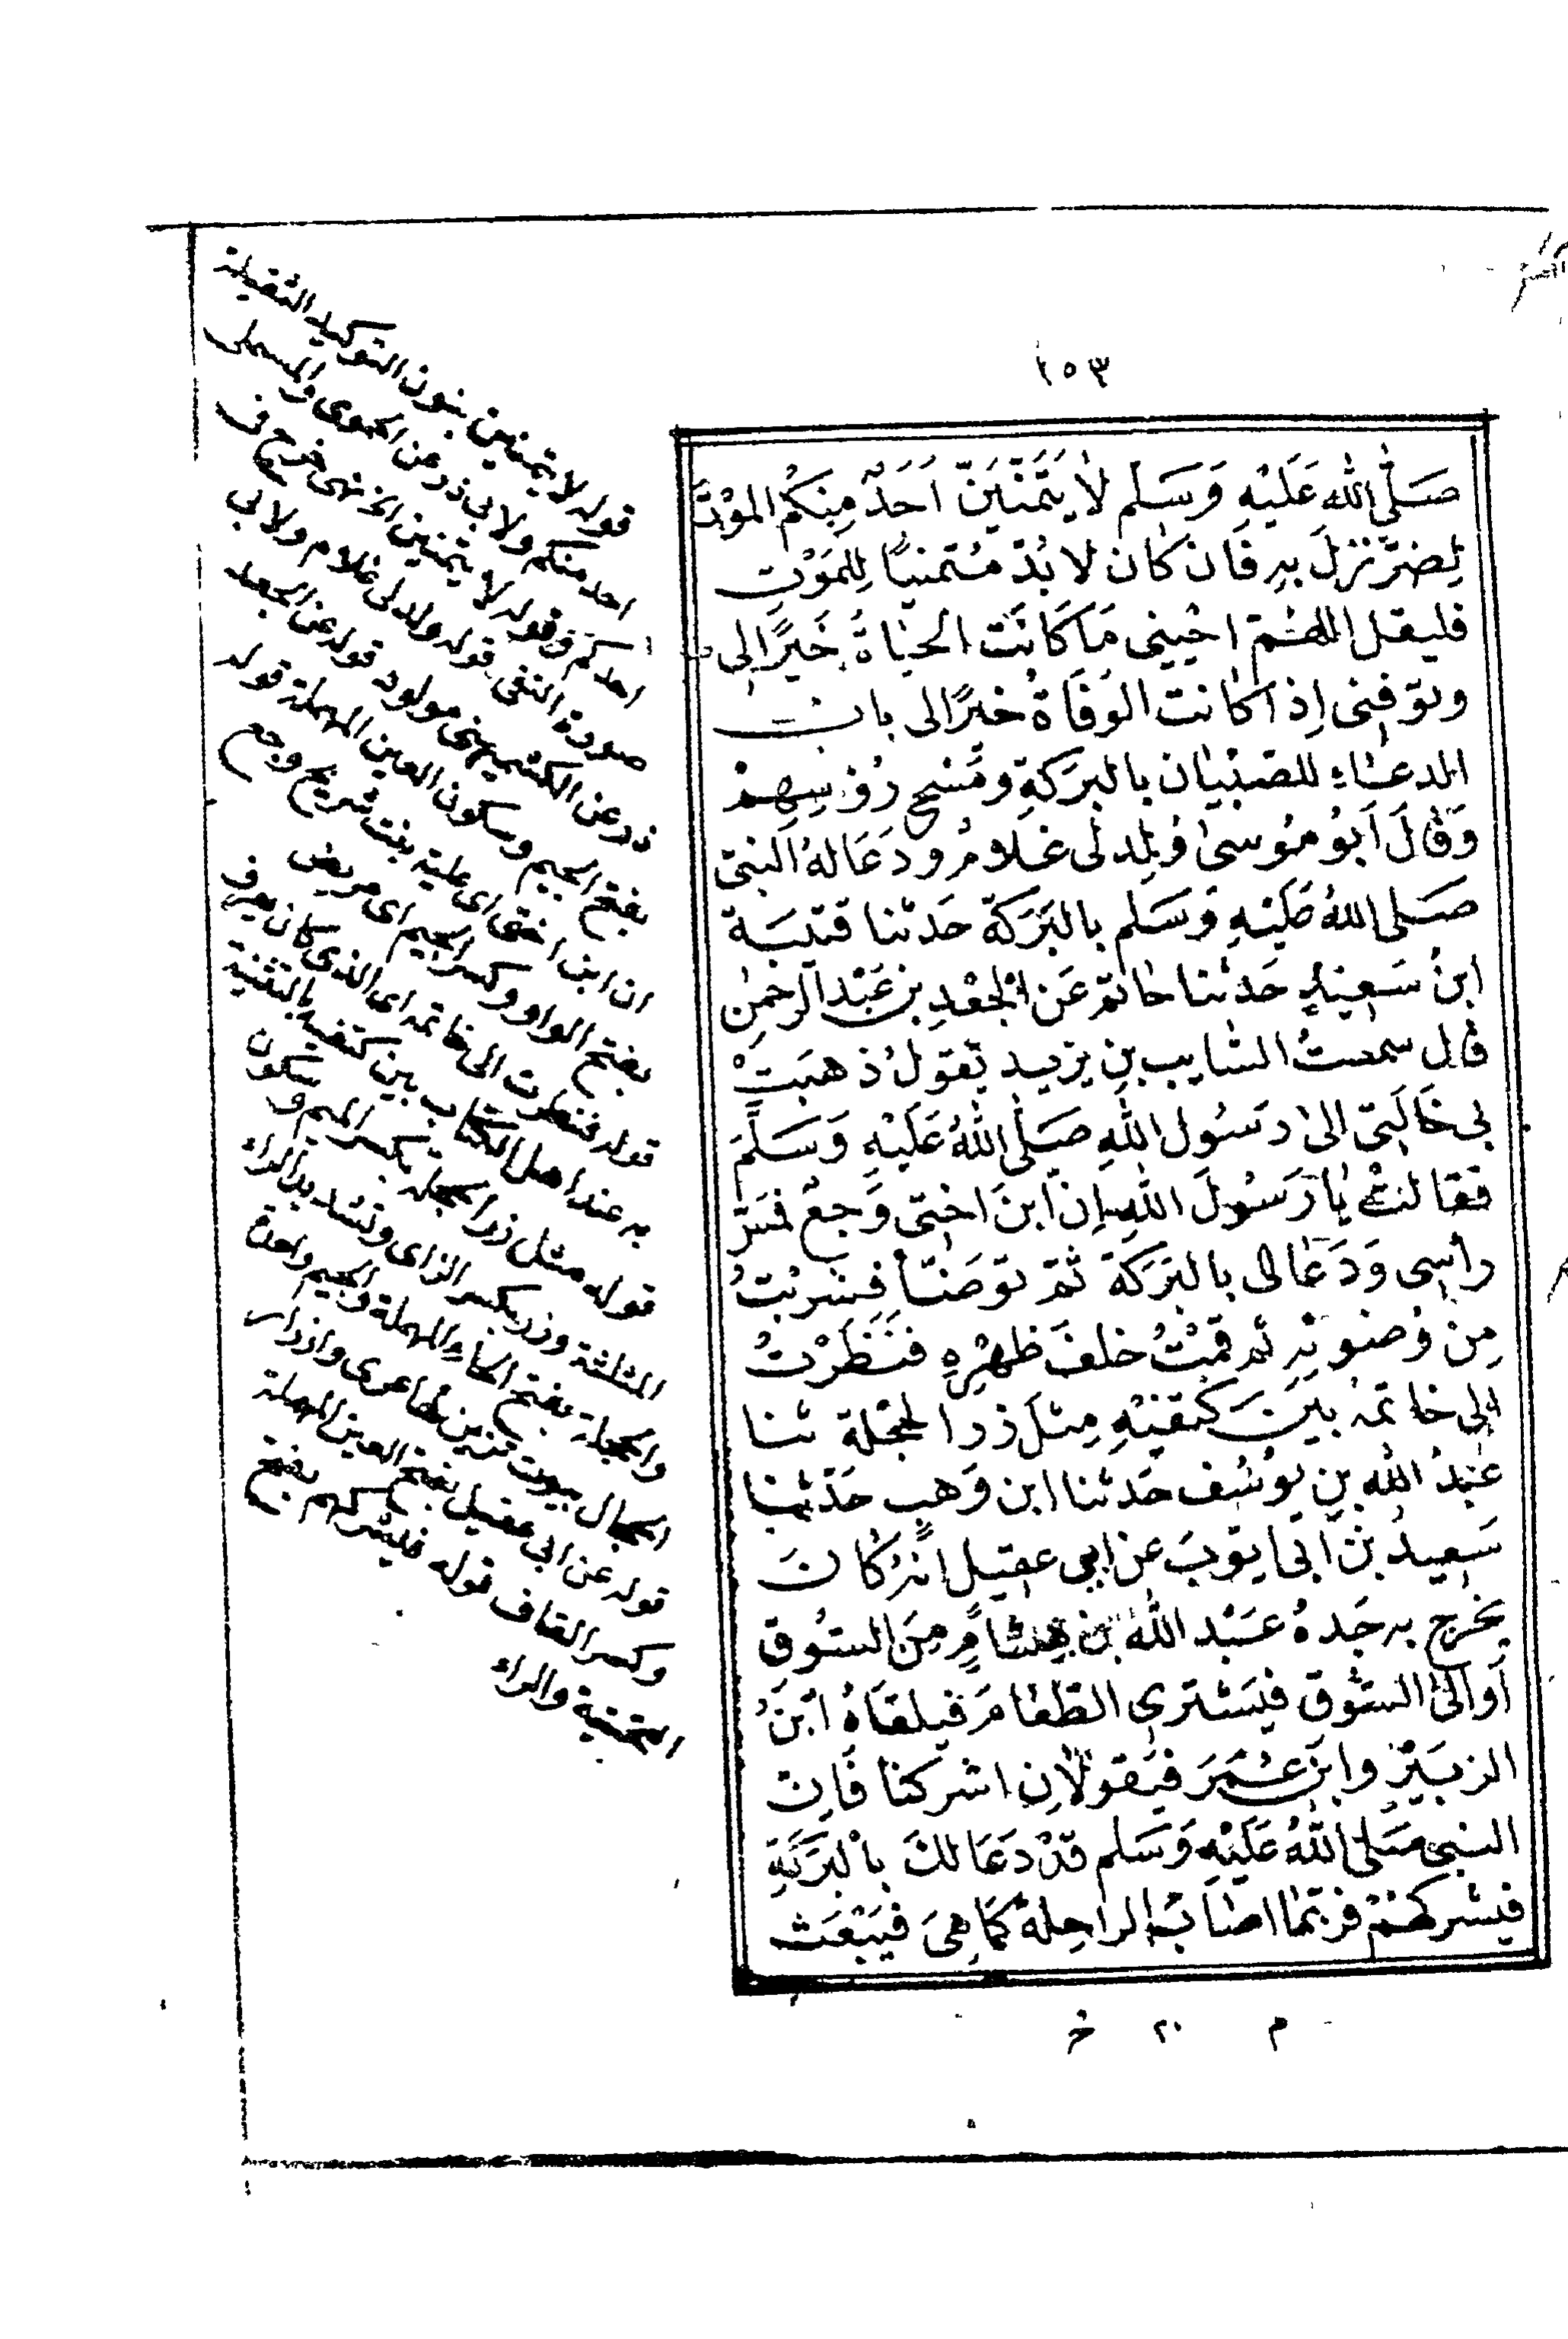 ١٥٣
صَلَّى اللهُ عَلَيْهِ وَسَلم لا يَتَمَنَّيَنَّ اَحَدٌ مِنكُم المَوْتَ
لِضرٍّ نزلَ بهِ فَان كان لا بُدّ مُتمنيًا لِلمَوْتِ
فليقل اللهُمّ احْيِنِي مَا كَانَت الحيَاةُ خَيرًا لِى
وتوفنى اِذا كانت الوَفَاةُ خيرًا لى باب
الدعَاءِ للصّبْيَان بالبَرَكةِ ومَسْحِ رُؤسِهِمْ
وَقالَ أبُو مُوسىٰ وُلِد لى غلامٌ ودَعَا لهُ النبىّ
صَلى اللهُ عَليْهِ وَسَلم بالبَرَكة حَدثنا قتيبَة
ابنُ سَعِيدٍ حَدثنا حَاتم عَن الجَعْدِ بن عَبْد الرحمٰنِ
قال سمعتُ السّايب بن يزيد يَقولُ ذهبَتْ
بى خَالَتِى الىٰ رَسُول اللهِ صَلى اللهُ عَلَيْهِ وَسَلَّمَ
فقالت يٰا رَسُولَ اللهِ اِن ابنَ اختِى وَجعٌ فمسَح
رأسِى وَدَعَا لى بالبَرَكة ثمّ توضّأ فشربْتُ
مِن وضوئهِ ثم قمْتُ خلفَ ظهْرِهِ فنَظَرْتُ
اِلى خاتمه بَيْنَ كتفيْهِ مِثلَ زر الحجلة ثنا
عَبدُ الله بن يوسُف حَدثنا ابن وَهب حَدّثنا
سَعيدُ بن ابى ايوبَ عن ابى عقيل انه كانَ
يخرج به جَدهُ عَبْد الله بن هِشامٍ مِنَ السّوق
أو الىٰ السّوق فيَشترى الطّعَامَ فيلقاهُ ابنُ
الزبَيْرِ وابن عُمَرَ فيَقولانِ اشركنا فَاِن
النبى صَلى اللهُ عَلَيْهِ وَسَلم قدْ دَعَا لكَ بالبَرَكةِ
فيشركهُمْ فربّما اصَابَ الراحِلة كَمَا هِىَ فيَبْعَث
م ٢٠ خ
قوله لا يتمنين بنون التوكيد الثقيلة
احد منكم ولابى ذر عن الحموى والمستملى
احدكم وقوله لا يتمنين الخ نهى خرج فى
صورة النفى قوله ولد لى غلام ولابى
ذر عن الكشميهنى مولود قوله عن الجعد
بفتح الجيم وسكون العين المهملة قوله
ان ابن اختى اى علية بنت شريح وجع
بفتح الواو وكسر الجيم اى مريض
قوله فنظرت الى خاتمه اى الذى كان يعرف
به عند اهل الكتاب بين كتفيه بالتثنية
قوله مثل زر الحجلة بكسر الميم وسكون
المثلثة وزر بكسر الزاى وتشديد الراء
والحجلة بفتح الحاء المهملة والجيم واحدة
الحجال بيوت تزين لها عرى وازرار
قوله عن ابى عقيل بفتح العين المهملة
وكسر القاف قوله فيشركهم بفتح
التحتية والراء